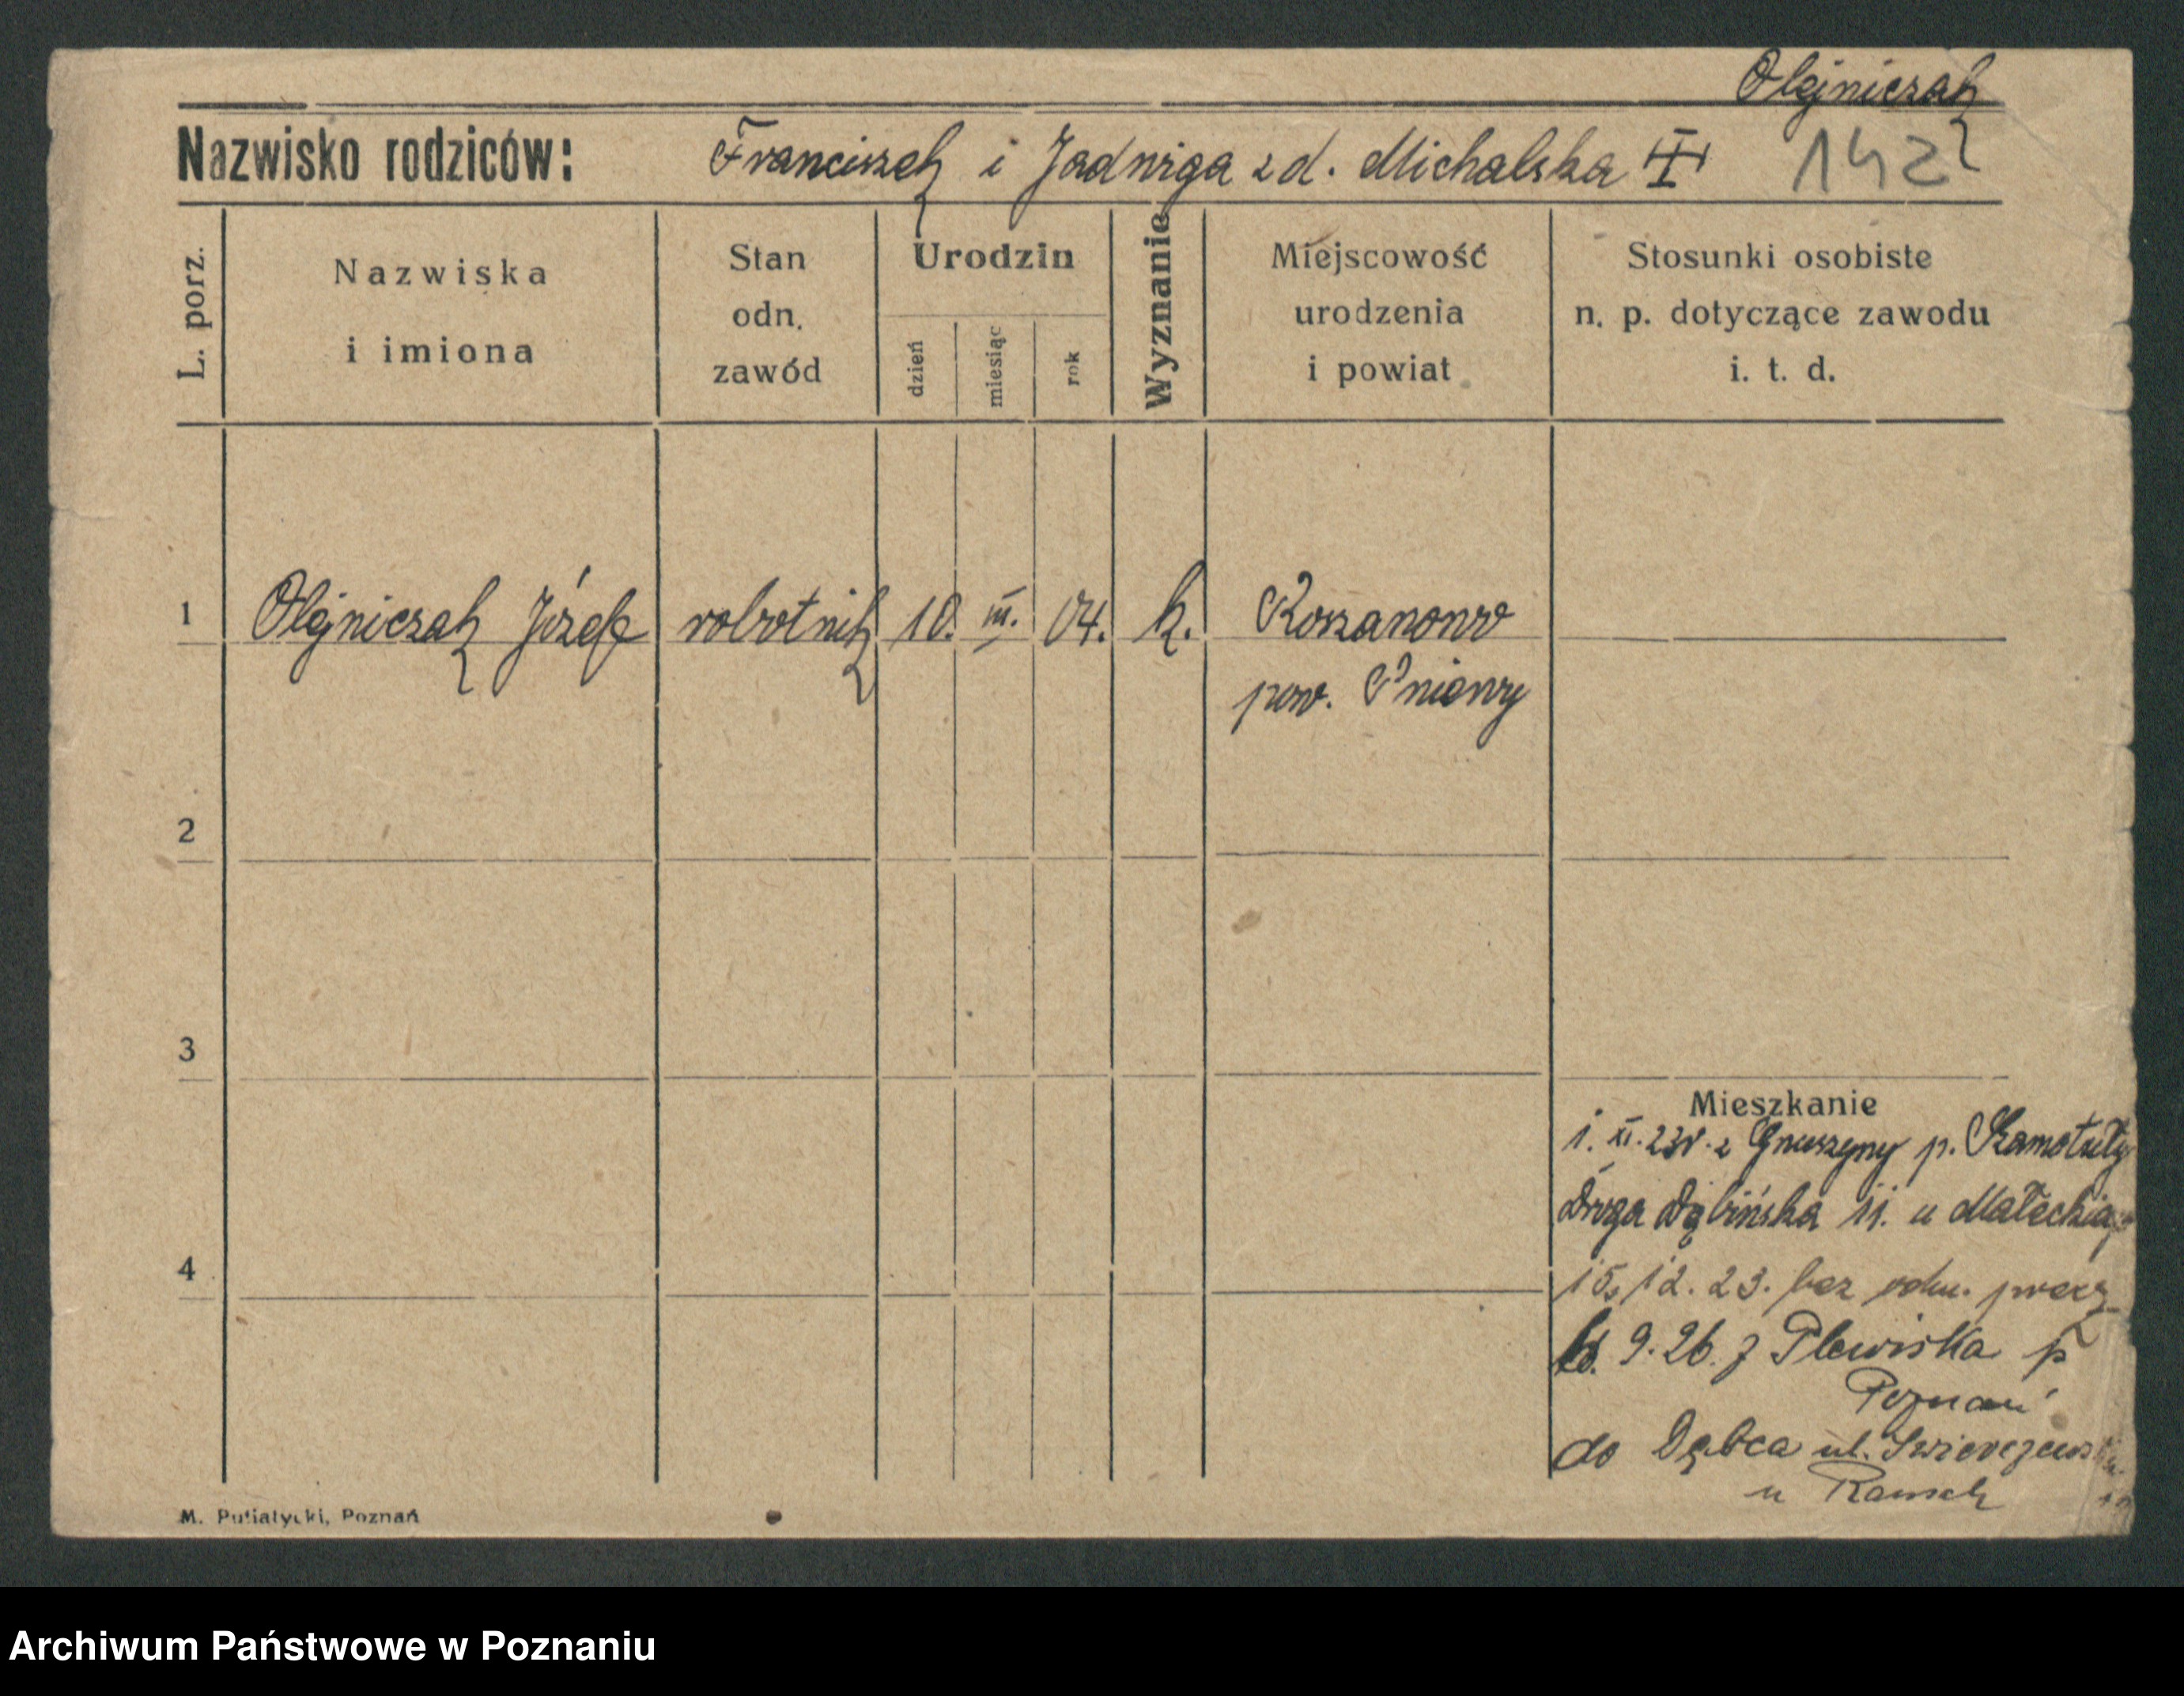 Olejniczak
Nazwisko rodziców: Franciszek i Jadwiga z d. Michalska 142
L. porz.
Nazwiska
i imiona
Stan
odn.
zawód
Urodzin
dzień
miesiąc
rok
Wyznanie
Miejscowość
urodzenia
i powiat
Stosunki osobiste
n. p. dotyczące zawodu
i. t. d.
1 Olejniczak Józef robotnik 10. III. 04. k. Koszanowo
pow. Pniewy
2
3
Mieszkanie
1. XI. 23 z p. Szamotuły
Droga Dębińska 11. u
4
15. 12. 23. bez
9. 26. z Plewiska p
Poznań
do Dębca ul.
u
M. Putiatycki, Poznań
Archiwum Państwowe w Poznaniu